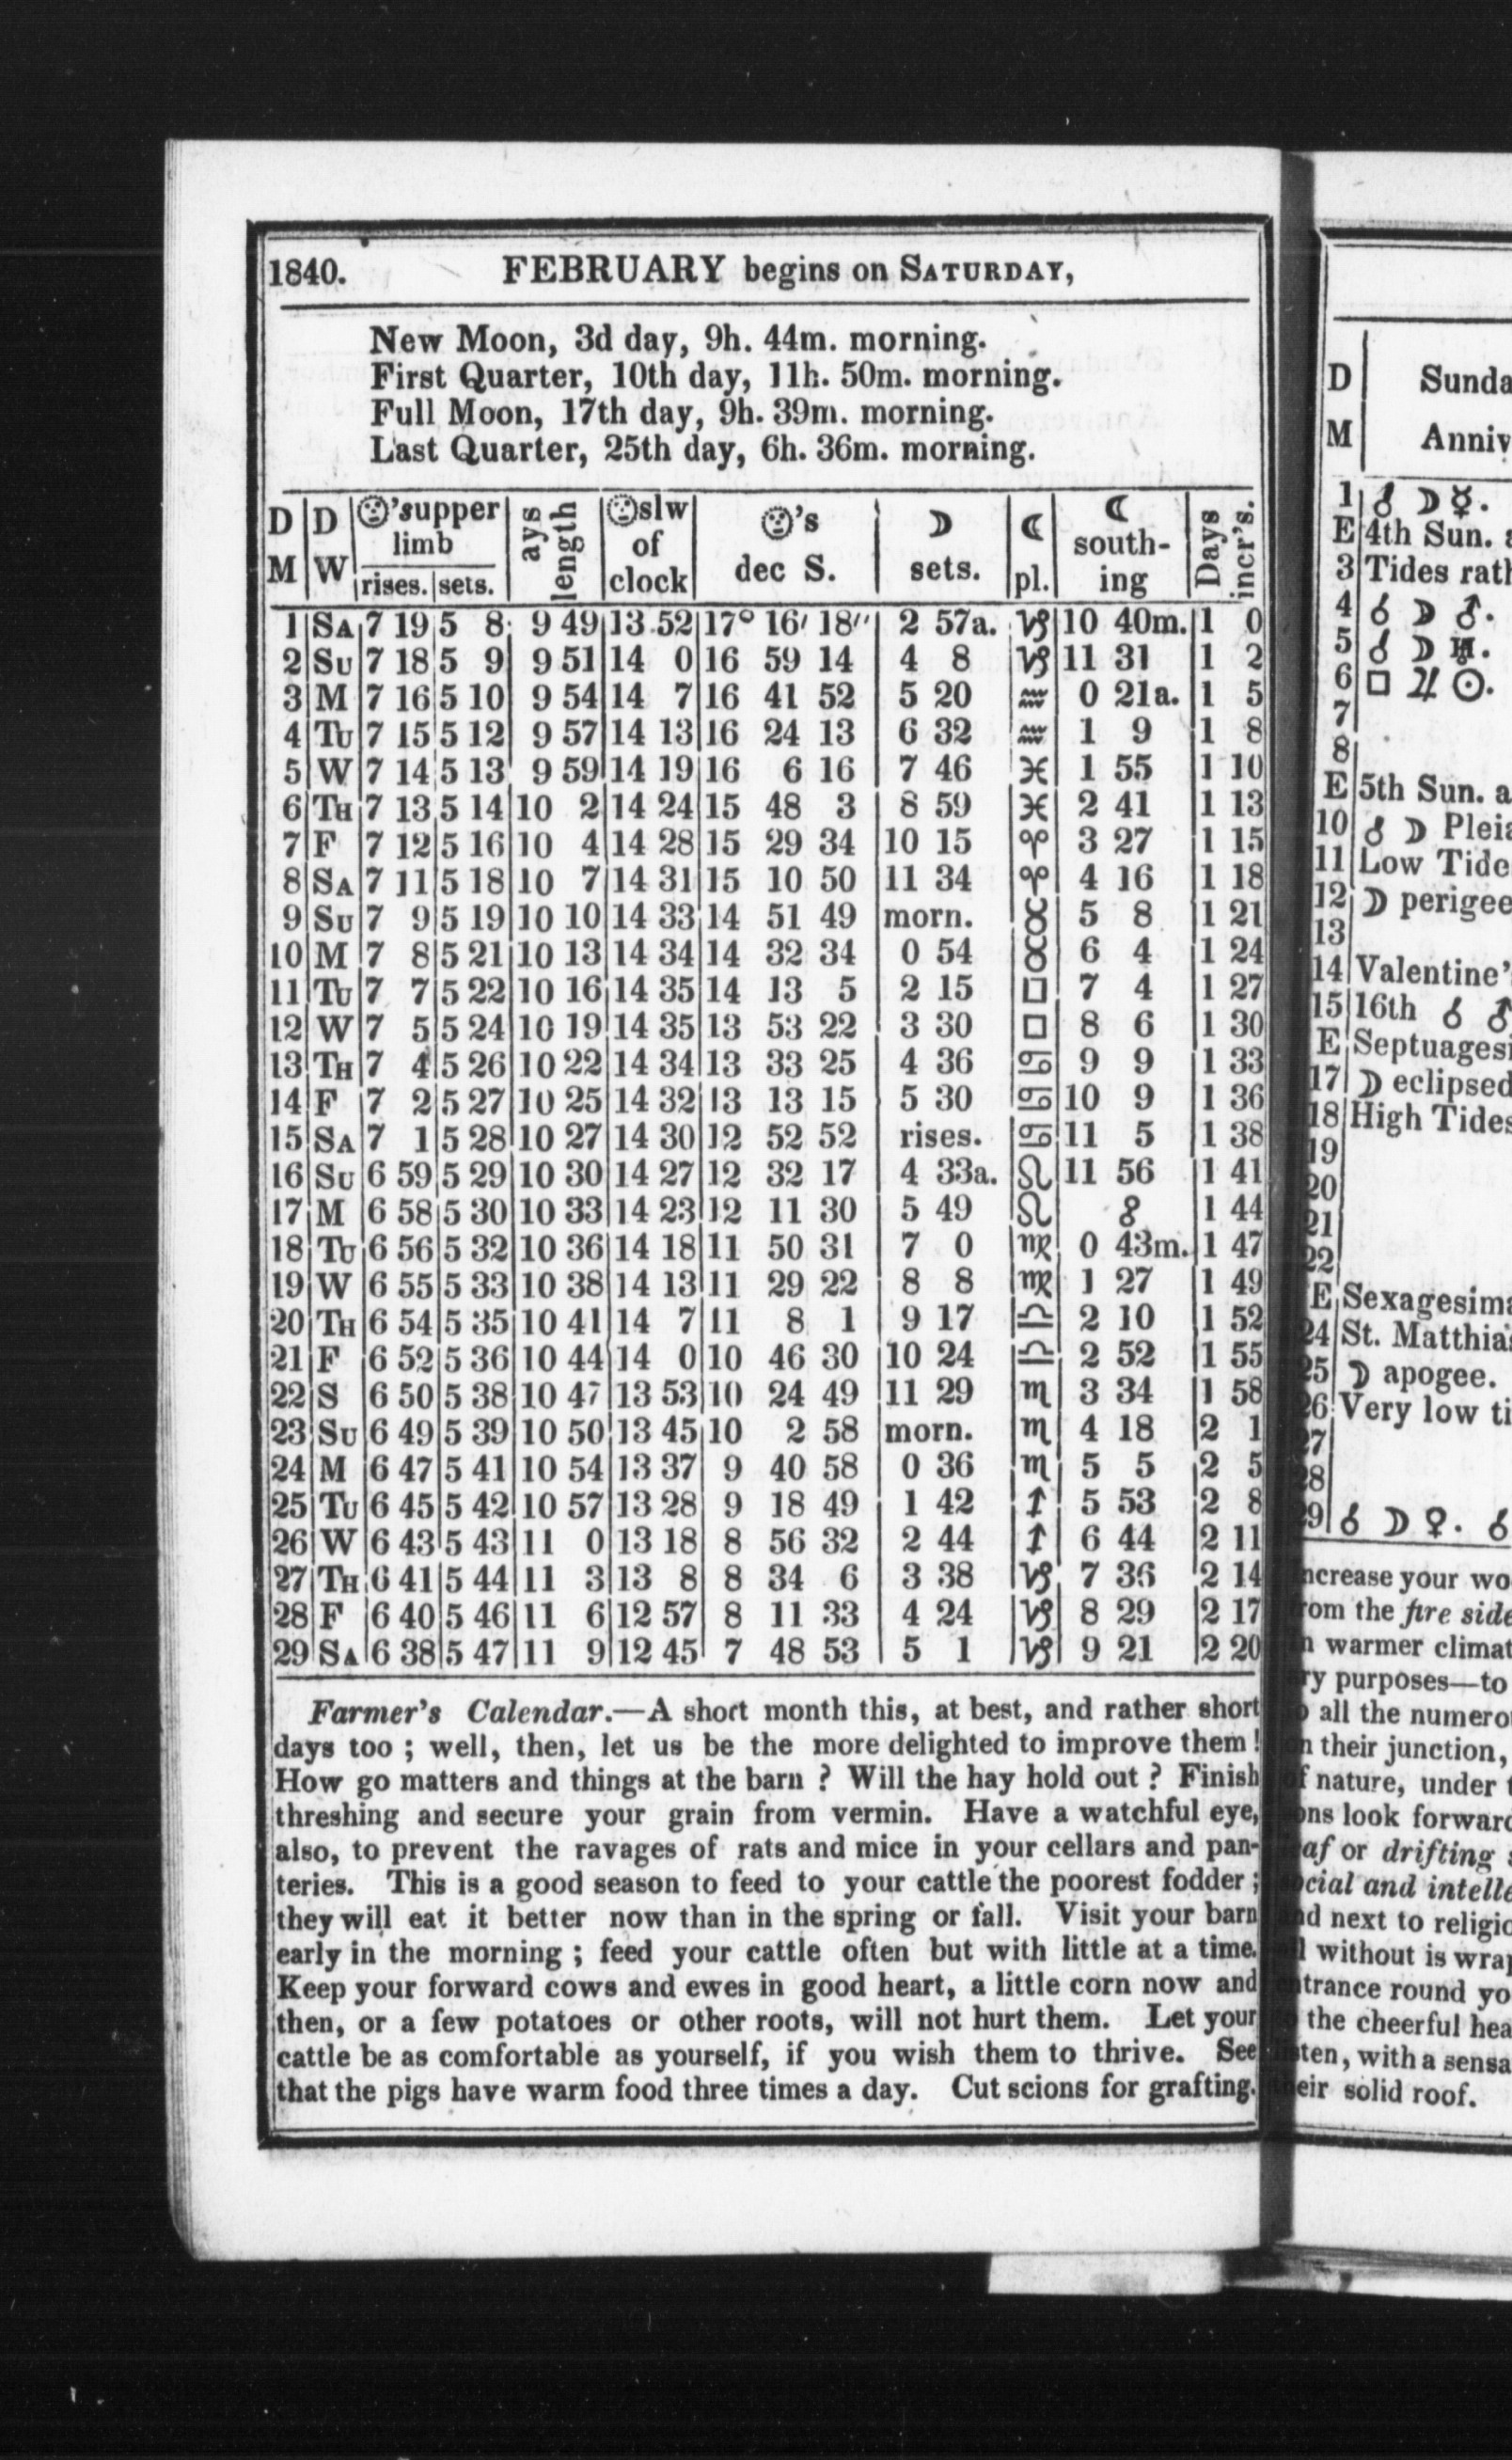 1840. FEBRUARY begins on SATURDAY,
New Moon, 3d day, 9h. 44m. morning.
First Quarter, 10th day, 11h. 50m. morning.
Full Moon, 17th day, 9h. 39m. morning.
Last Quarter, 25th day, 6h. 36m. morning.
D M | D W | ☉'s upper limb rises. | sets. | ays length | ☉ slw of clock | ☉'s dec S. | ☽ sets. | ☾ pl. | ☾ south-ing | Days incr's.
1 SA 7 19 5 8 9 49 13 52 17° 16′ 18″ 2 57a. ♑ 10 40m. 1 0
2 SU 7 18 5 9 9 51 14 0 16 59 14 4 8 ♑ 11 31 1 2
3 M 7 16 5 10 9 54 14 7 16 41 52 5 20 ♒ 0 21a. 1 5
4 TU 7 15 5 12 9 57 14 13 16 24 13 6 32 ♒ 1 9 1 8
5 W 7 14 5 13 9 59 14 19 16 6 16 7 46 ♓ 1 55 1 10
6 TH 7 13 5 14 10 2 14 24 15 48 3 8 59 ♓ 2 41 1 13
7 F 7 12 5 16 10 4 14 28 15 29 34 10 15 ♈ 3 27 1 15
8 SA 7 11 5 18 10 7 14 31 15 10 50 11 34 ♈ 4 16 1 18
9 SU 7 9 5 19 10 10 14 33 14 51 49 morn. ♉ 5 8 1 21
10 M 7 8 5 21 10 13 14 34 14 32 34 0 54 ♉ 6 4 1 24
11 TU 7 7 5 22 10 16 14 35 14 13 5 2 15 □ 7 4 1 27
12 W 7 5 5 24 10 19 14 35 13 53 22 3 30 □ 8 6 1 30
13 TH 7 4 5 26 10 22 14 34 13 33 25 4 36 ♋ 9 9 1 33
14 F 7 2 5 27 10 25 14 32 13 13 15 5 30 ♋ 10 9 1 36
15 SA 7 1 5 28 10 27 14 30 12 52 52 rises. ♋ 11 5 1 38
16 SU 6 59 5 29 10 30 14 27 12 32 17 4 33a. ♌ 11 56 1 41
17 M 6 58 5 30 10 33 14 23 12 11 30 5 49 ♌ ☍ 1 44
18 TU 6 56 5 32 10 36 14 18 11 50 31 7 0 ♍ 0 43m. 1 47
19 W 6 55 5 33 10 38 14 13 11 29 22 8 8 ♍ 1 27 1 49
20 TH 6 54 5 35 10 41 14 7 11 8 1 9 17 ♎ 2 10 1 52
21 F 6 52 5 36 10 44 14 0 10 46 30 10 24 ♎ 2 52 1 55
22 S 6 50 5 38 10 47 13 53 10 24 49 11 29 ♏ 3 34 1 58
23 SU 6 49 5 39 10 50 13 45 10 2 58 morn. ♏ 4 18 2 1
24 M 6 47 5 41 10 54 13 37 9 40 58 0 36 ♏ 5 5 2 5
25 TU 6 45 5 42 10 57 13 28 9 18 49 1 42 ♐ 5 53 2 8
26 W 6 43 5 43 11 0 13 18 8 56 32 2 44 ♐ 6 44 2 11
27 TH 6 41 5 44 11 3 13 8 8 34 6 3 38 ♑ 7 36 2 14
28 F 6 40 5 46 11 6 12 57 8 11 33 4 24 ♑ 8 29 2 17
29 SA 6 38 5 47 11 9 12 45 7 48 53 5 1 ♑ 9 21 2 20
Farmer's Calendar.—A short month this, at best, and rather short
days too ; well, then, let us be the more delighted to improve them !
How go matters and things at the barn ? Will the hay hold out ? Finish
threshing and secure your grain from vermin. Have a watchful eye,
also, to prevent the ravages of rats and mice in your cellars and pan-
teries. This is a good season to feed to your cattle the poorest fodder ;
they will eat it better now than in the spring or fall. Visit your barn
early in the morning ; feed your cattle often but with little at a time.
Keep your forward cows and ewes in good heart, a little corn now and
then, or a few potatoes or other roots, will not hurt them. Let your
cattle be as comfortable as yourself, if you wish them to thrive. See
that the pigs have warm food three times a day. Cut scions for grafting.
D Sunda
M Anniv
1 ☌ ☽ ☿.
E 4th Sun.
3 Tides rath
4 ☌ ☽ ♂.
5 ☌ ☽ ♅.
6 □ ♃ ☉.
7
8
E 5th Sun. a
10 ☌ ☽ Pleia
11 Low Tide
12 ☽ perigee
13
14 Valentine'
15 16th ☌ ♂
E Septuagesi
17 ☽ eclipsed
18 High Tides
19
20
21
22
E Sexagesima
24 St. Matthia
25 ☽ apogee.
26 Very low ti
27
28
29 ☌ ☽ ♀. ☌
ncrease your wo
rom the fire side
warmer climat
ry purposes—to
all the numero
their junction,
f nature, under
ns look forward
af or drifting
cial and intelle
d next to religio
without is wrap
trance round yo
the cheerful hea
ten, with a sensa
eir solid roof.